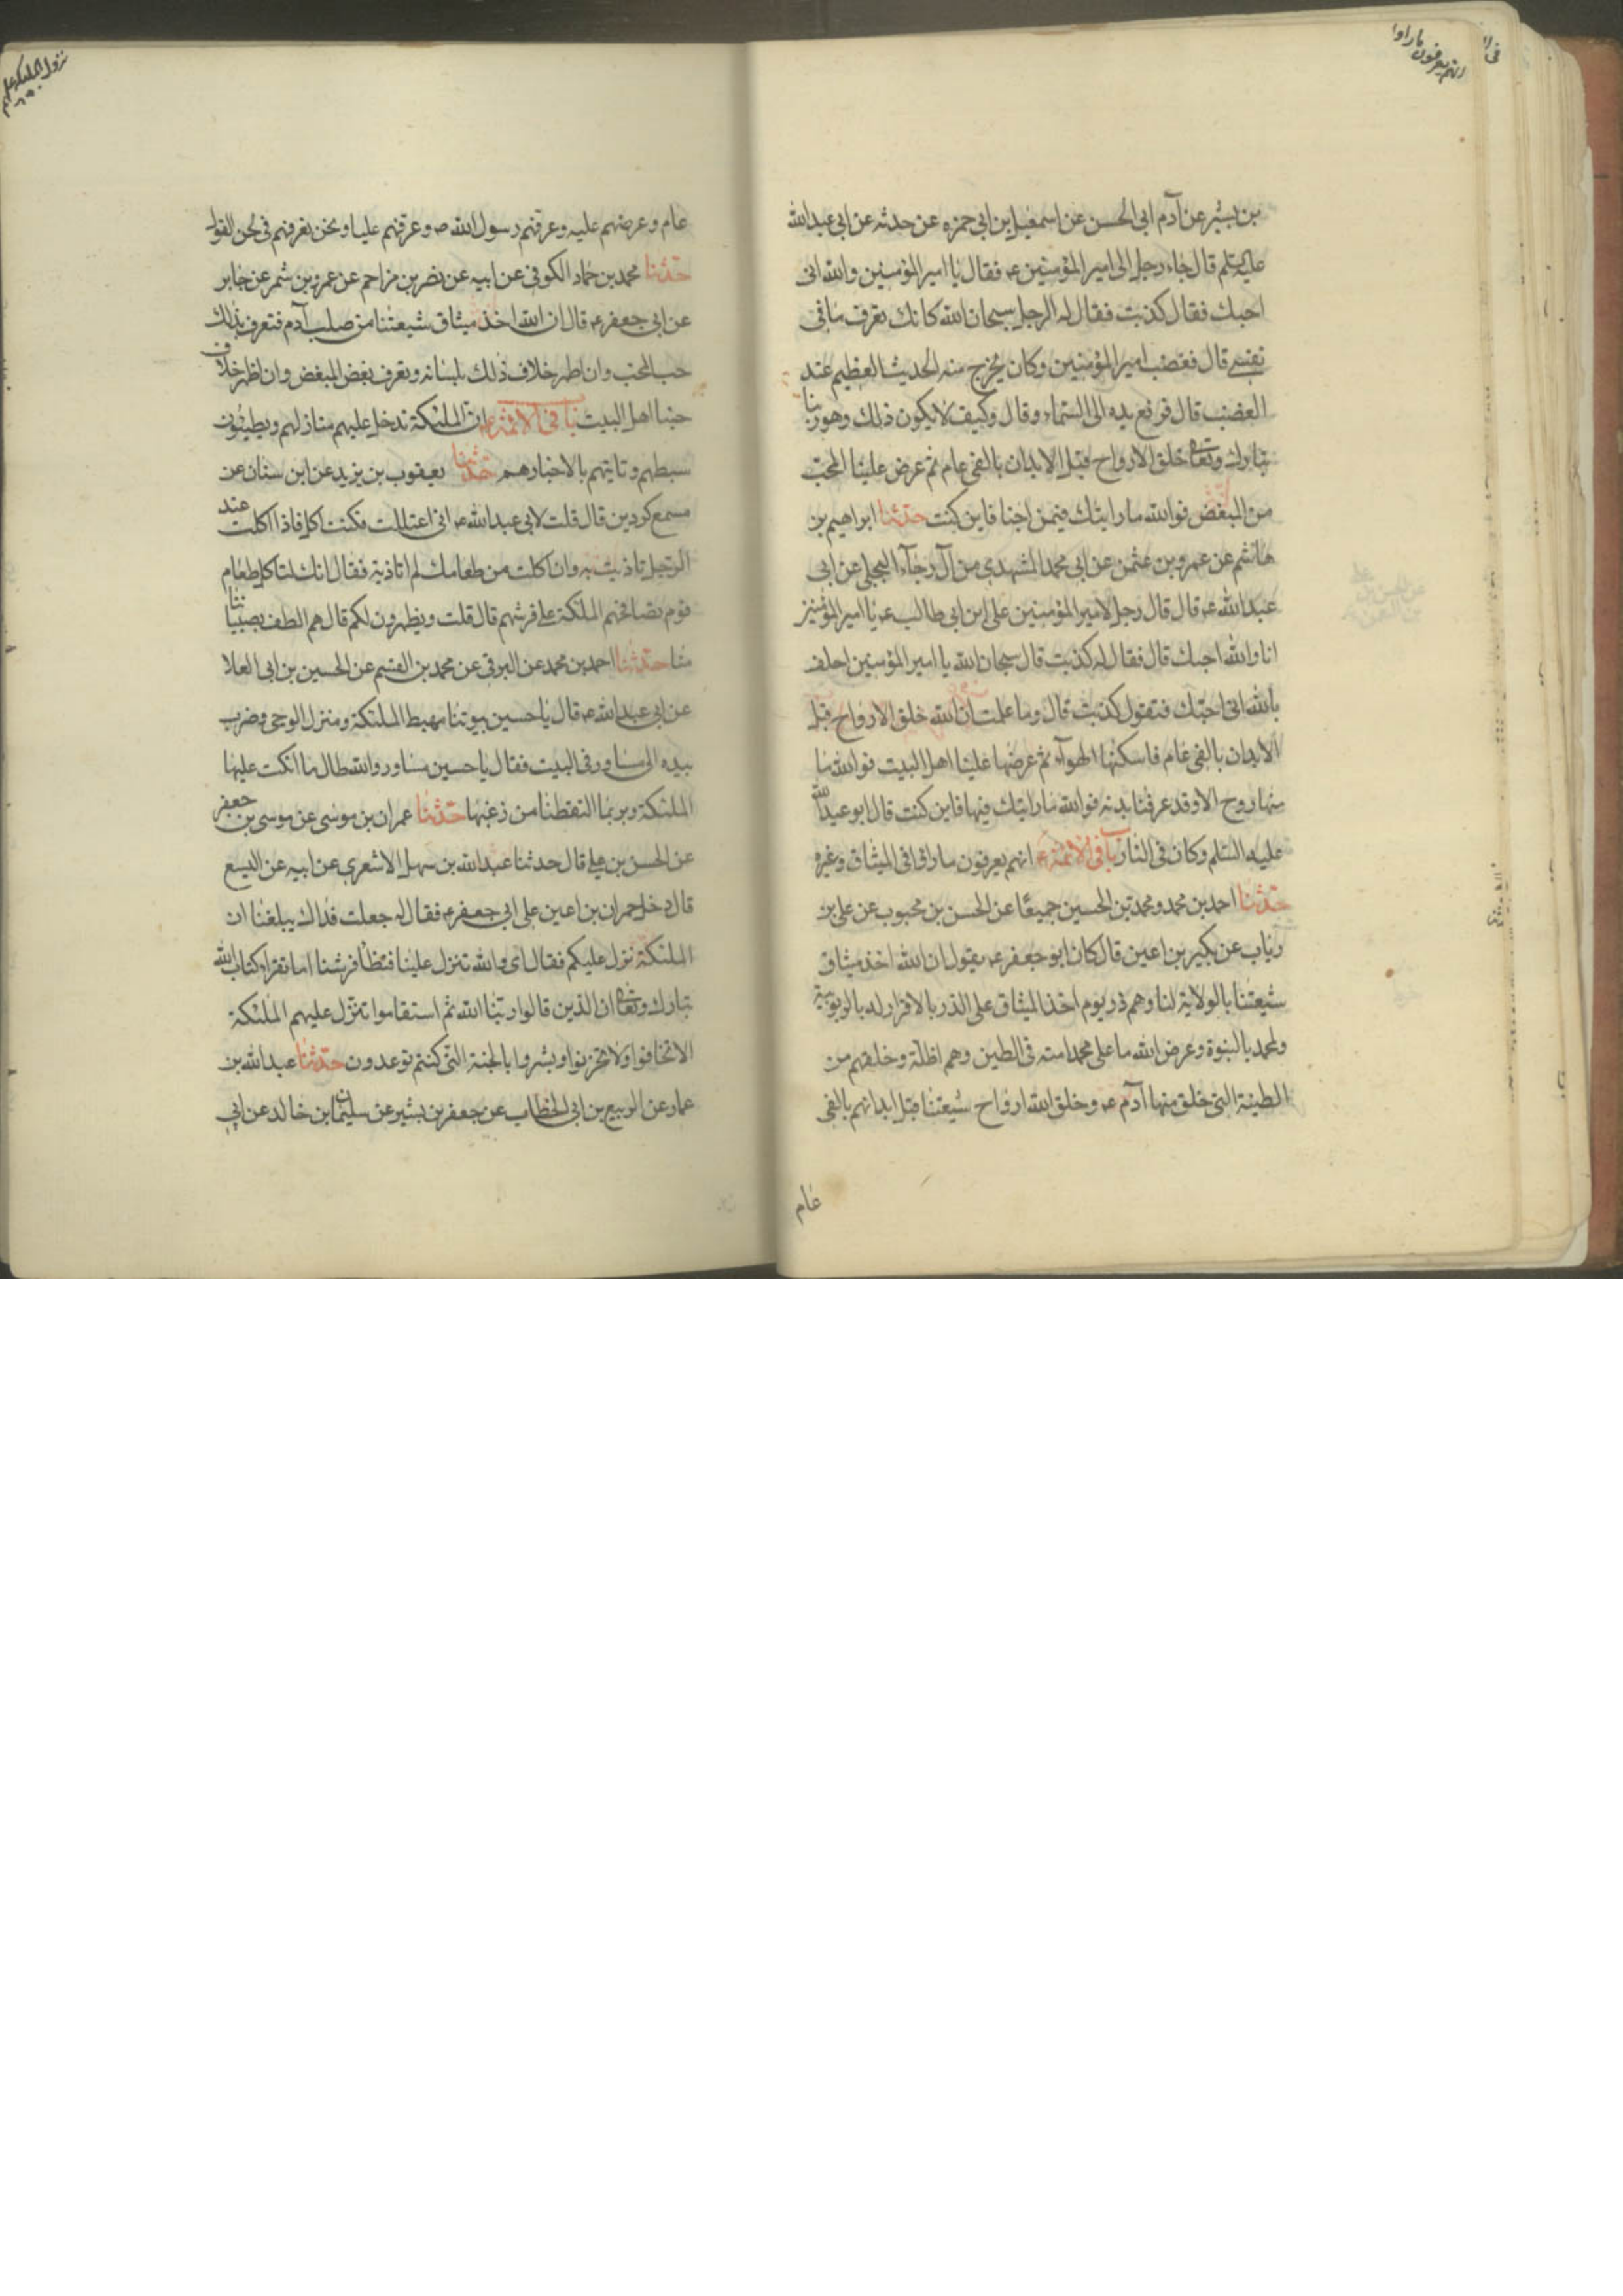 انهم يعرفون ما راوا
بن بشير عن آدم ابي الحسن عن اسمعيل بن ابي حمزه عن حدثه عن ابي عبدالله
عليه السلم قال جاء رجل الى امير المؤمنين عـ فقال يا امير المؤمنين والله اني
احبك فقال كذبت فقال له الرجل سبحان الله كانك تعرف ما في
نفسي قال فغضب امير المؤمنين وكان يخرج منه الحديث العظيم عند
الغضب قال فرفع يده الى السماء وقال وكيف لا يكون ذلك وهو ربنا
تبارك وتعالى خلق الارواح قبل الابدان بالفي عام ثم عرض علينا المحب
من المبغض فوالله ما رايتك فيمن احبنا فاين كنت حدثنا ابراهيم بن
هاشم عن عمرو بن عثمن عن ابي محمد المشهدي من آل رجآء البجلي عن ابي
عبدالله عـ قال قال رجل لامير المؤمنين علي ابن ابي طالب عـ يا امير المؤمنين
انا والله احبك قال فقال له كذبت قال سبحان الله يا امير المؤمنين احلف
بالله اني احبك فتقول كذبت قال وما علمت ان الله خلق الارواح قبل
الابدان بالفي عام فاسكنها الهوآء ثم عرضها علينا اهل البيت فوالله ما
منها روح الا وقد عرفنا بدنه فوالله ما رايتك فيها فاين كنت قال ابو عبدالله
عليه السلم وكان في النار باب في الائمة عـ انهم يعرفون ما راوا في الميثاق وغيره
حدثنا احمد بن محمد ومحمد بن الحسين جميعا عن الحسن بن محبوب عن علي بن
رياب عن بكير بن اعين قال كان ابو جعفر عـ يقول ان الله اخذ ميثاق
شيعتنا بالولاية لنا وهم ذر يوم اخذ الميثاق على الذر بالاقرار له بالربوبية
ولمحمد بالنبوة وعرض الله ما على محمد امته في الطين وهم اظلة وخلقهم من
الطينة التي خلق منها آدم عـ وخلق الله ارواح شيعتنا قبل ابدانهم بالفي
عام
نزول الملئكة عليهم
عام وعرضهم عليه وعرفهم رسول الله ص وعرفهم عليا ونحن نعرفهم في لحن القول
حدثنا محمد بن حماد الكوفي عن ابيه عن نصر بن مزاحم عن عمرو بن شمر عن جابر
عن ابي جعفر عـ قال ان الله اخذ ميثاق شيعتنا من صلب آدم فتعرف بذلك
حب المحب وان اظهر خلاف ذلك بلسانه ونعرف بغض المبغض وان اظهر خلاف
حبنا اهل البيت باب في الائمة عـ ان الملئكة تدخل عليهم منازلهم ويطئون
بسطهم وتاتيهم بالاخبار هـم حدثنا يعقوب بن يزيد عن ابن سنان عن
مسمع كردين قال قلت لابي عبدالله عـ اني اعتللت فكنت اكل فاذا اكلت عند
الرجل تاذيت به وان اكلت من طعامك لم اتاذ به فقال انك لتاكل طعام
قوم تصافحهم الملئكة على فرشهم قال قلت ويظهرون لكم قال هم الطف بصبياننا
منا حدثنا احمد بن محمد عن البرقي عن محمد بن القسم عن الحسين بن ابي العلا
عن ابي عبد الله عـ قال يا حسين بيوتنا مهبط الملئكة ومنزل الوحي وضرب
بيده الى مساور في البيت فقال يا حسين مساور والله طال ما اتكت عليها
الملئكة وربما التقطنا من زغبها حدثنا عمران بن موسى عن موسى بن جعفر
عن الحسن بن علي قال حدثنا عبدالله بن سهل الاشعري عن ابيه عن اليسع
قال دخل حمران بن اعين على ابي جعفر عـ فقال له جعلت فداك يبلغنا ان
الملئكة تنزل عليكم فقال اى والله تنزل علينا فتطأ فرشنا اما تقرا كتاب الله
تبارك وتعالى ان الذين قالوا ربنا الله ثم استقاموا تتنزل عليهم الملئكة
الا تخافوا ولا تحزنوا وبشروا بالجنة التي كنتم توعدون حدثنا عبدالله بن
عمار عن الربيع بن ابي الخطاب عن جعفر بن بشير عن سليمان بن خالد عن ابي